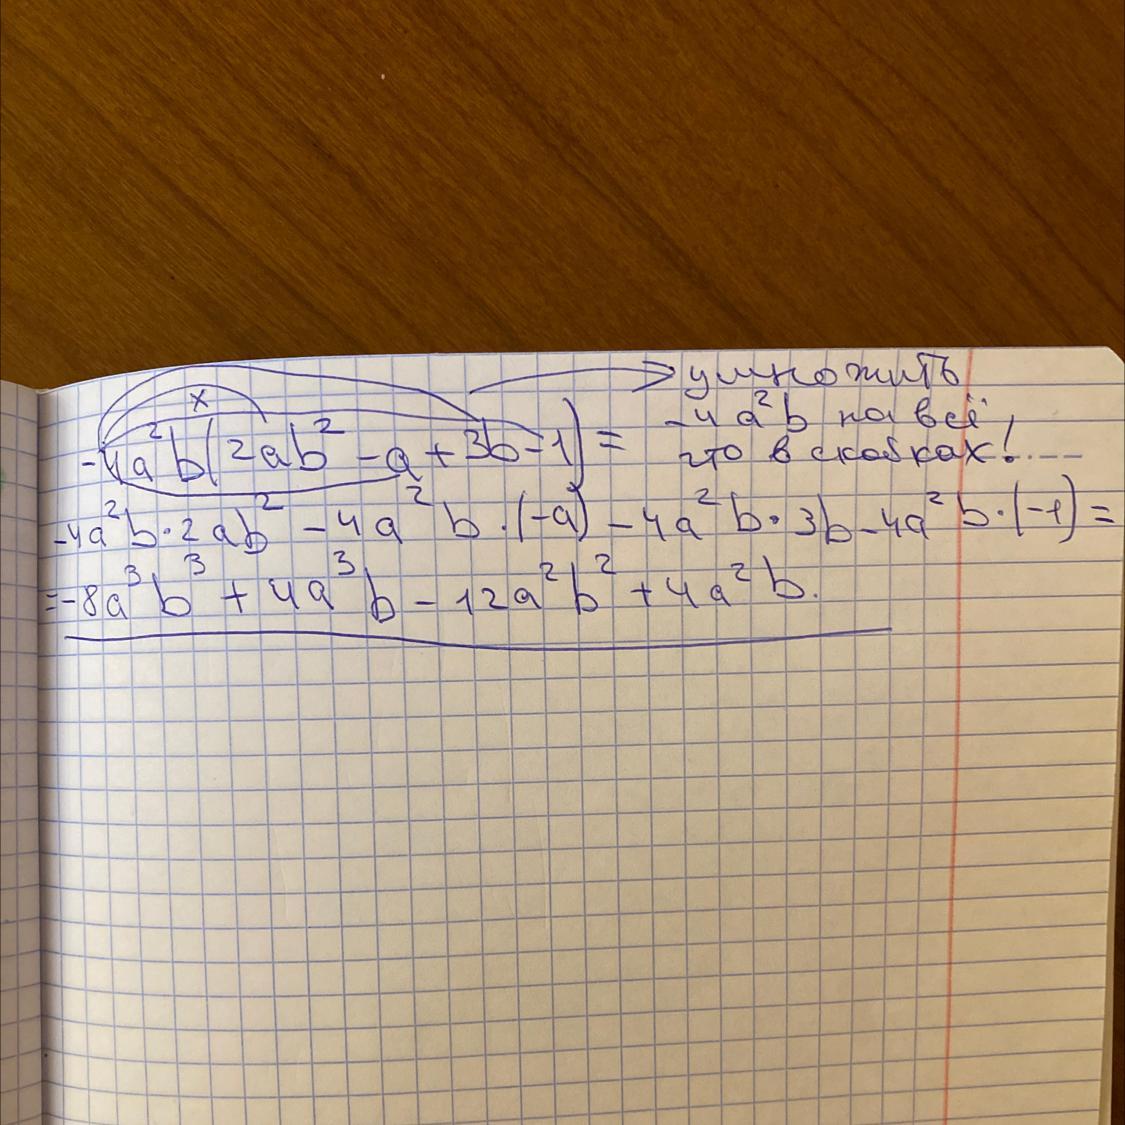 -4a²b(2ab² - a + 3b - 1) =
умножить
-4a²b на всё
что в скобках!
-4a²b·2ab² - 4a²b·(-a) - 4a²b·3b - 4a²b·(-1) =
= -8a³b³ + 4a³b - 12a²b² + 4a²b.